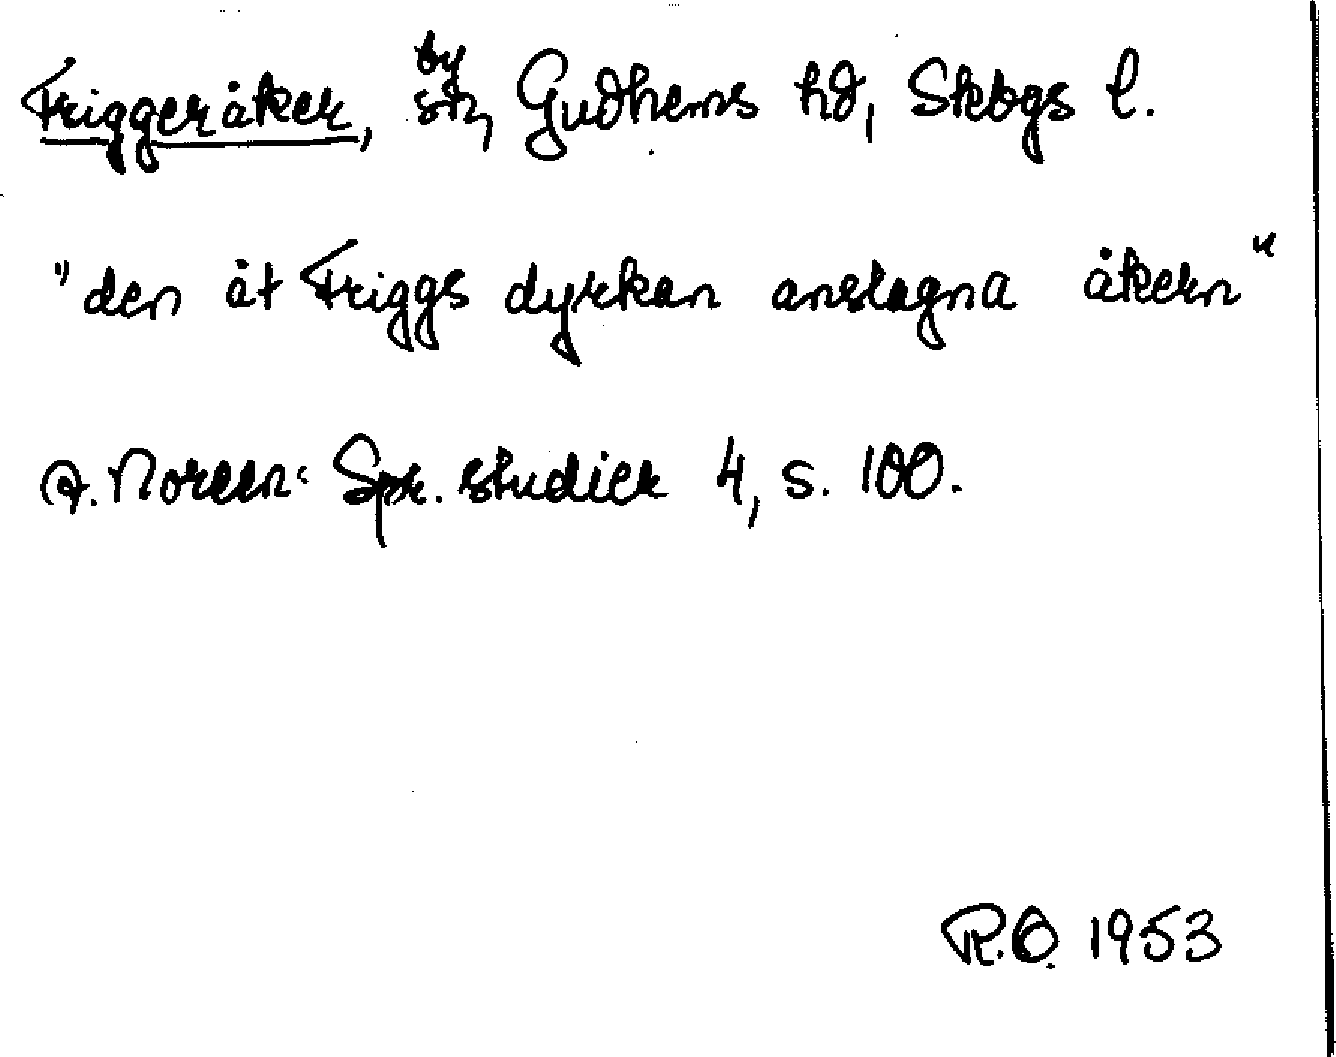 Friggeråker, by sn, Gudhems hd, Skbgs l.
"den åt Friggs dyrkan anslagna åkern"
A. Noreen: Spr. studier 4, s. 100.
R.O. 1953